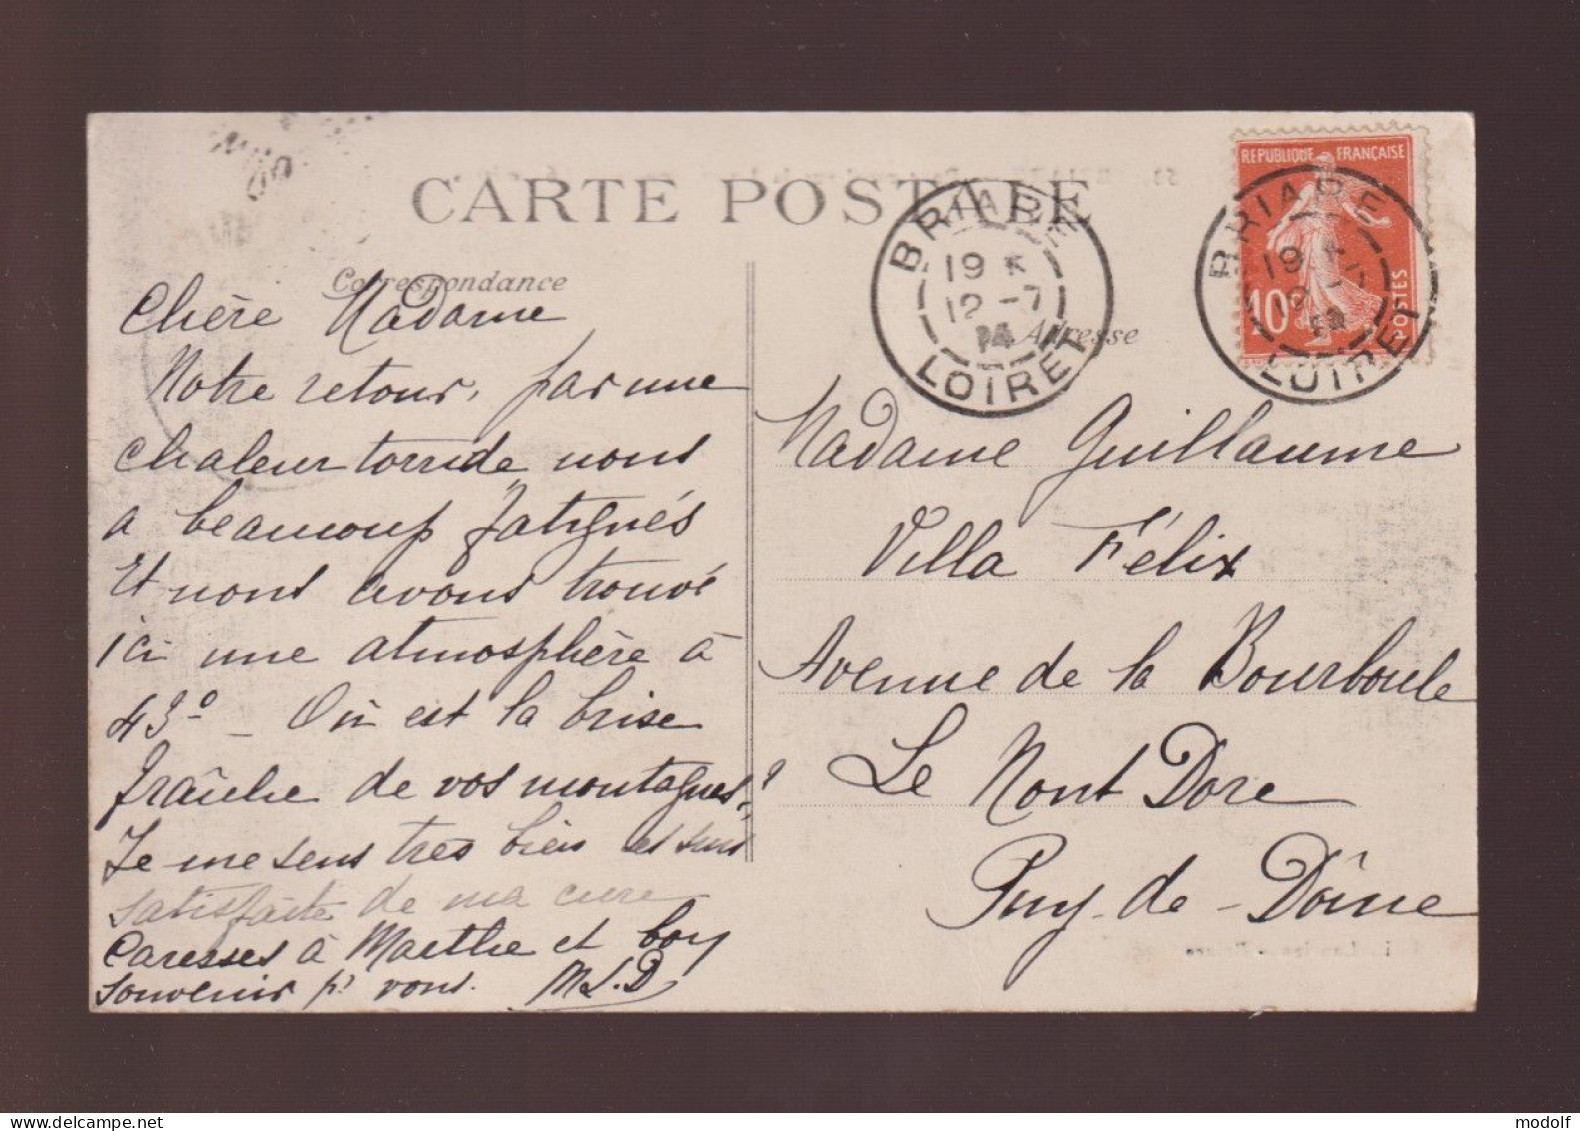 CARTE POSTALE
Correspondance
Chère Madame
Notre retour, par une
chaleur torride nous
a beaucoup fatigués
Et nous avons trouvé
ici une atmosphère à
43° - Où est la brise
fraîche de vos montagnes?
Je me sens très bien et suis
satisfaite de ma cure
Caresses à Marthe et boy
souvenir pr vous. M.L.D
BRIARE
19
12 -7
14
LOIRET
REPUBLIQUE FRANÇAISE
10
POSTES
BRIARE
19
12 -7
LOIRET
Adresse
Madame Guillaume
Villa Félix
Avenue de la Bourboule
Le Mont Dore
Puy-de-Dôme
www.delcampe.net
modolf